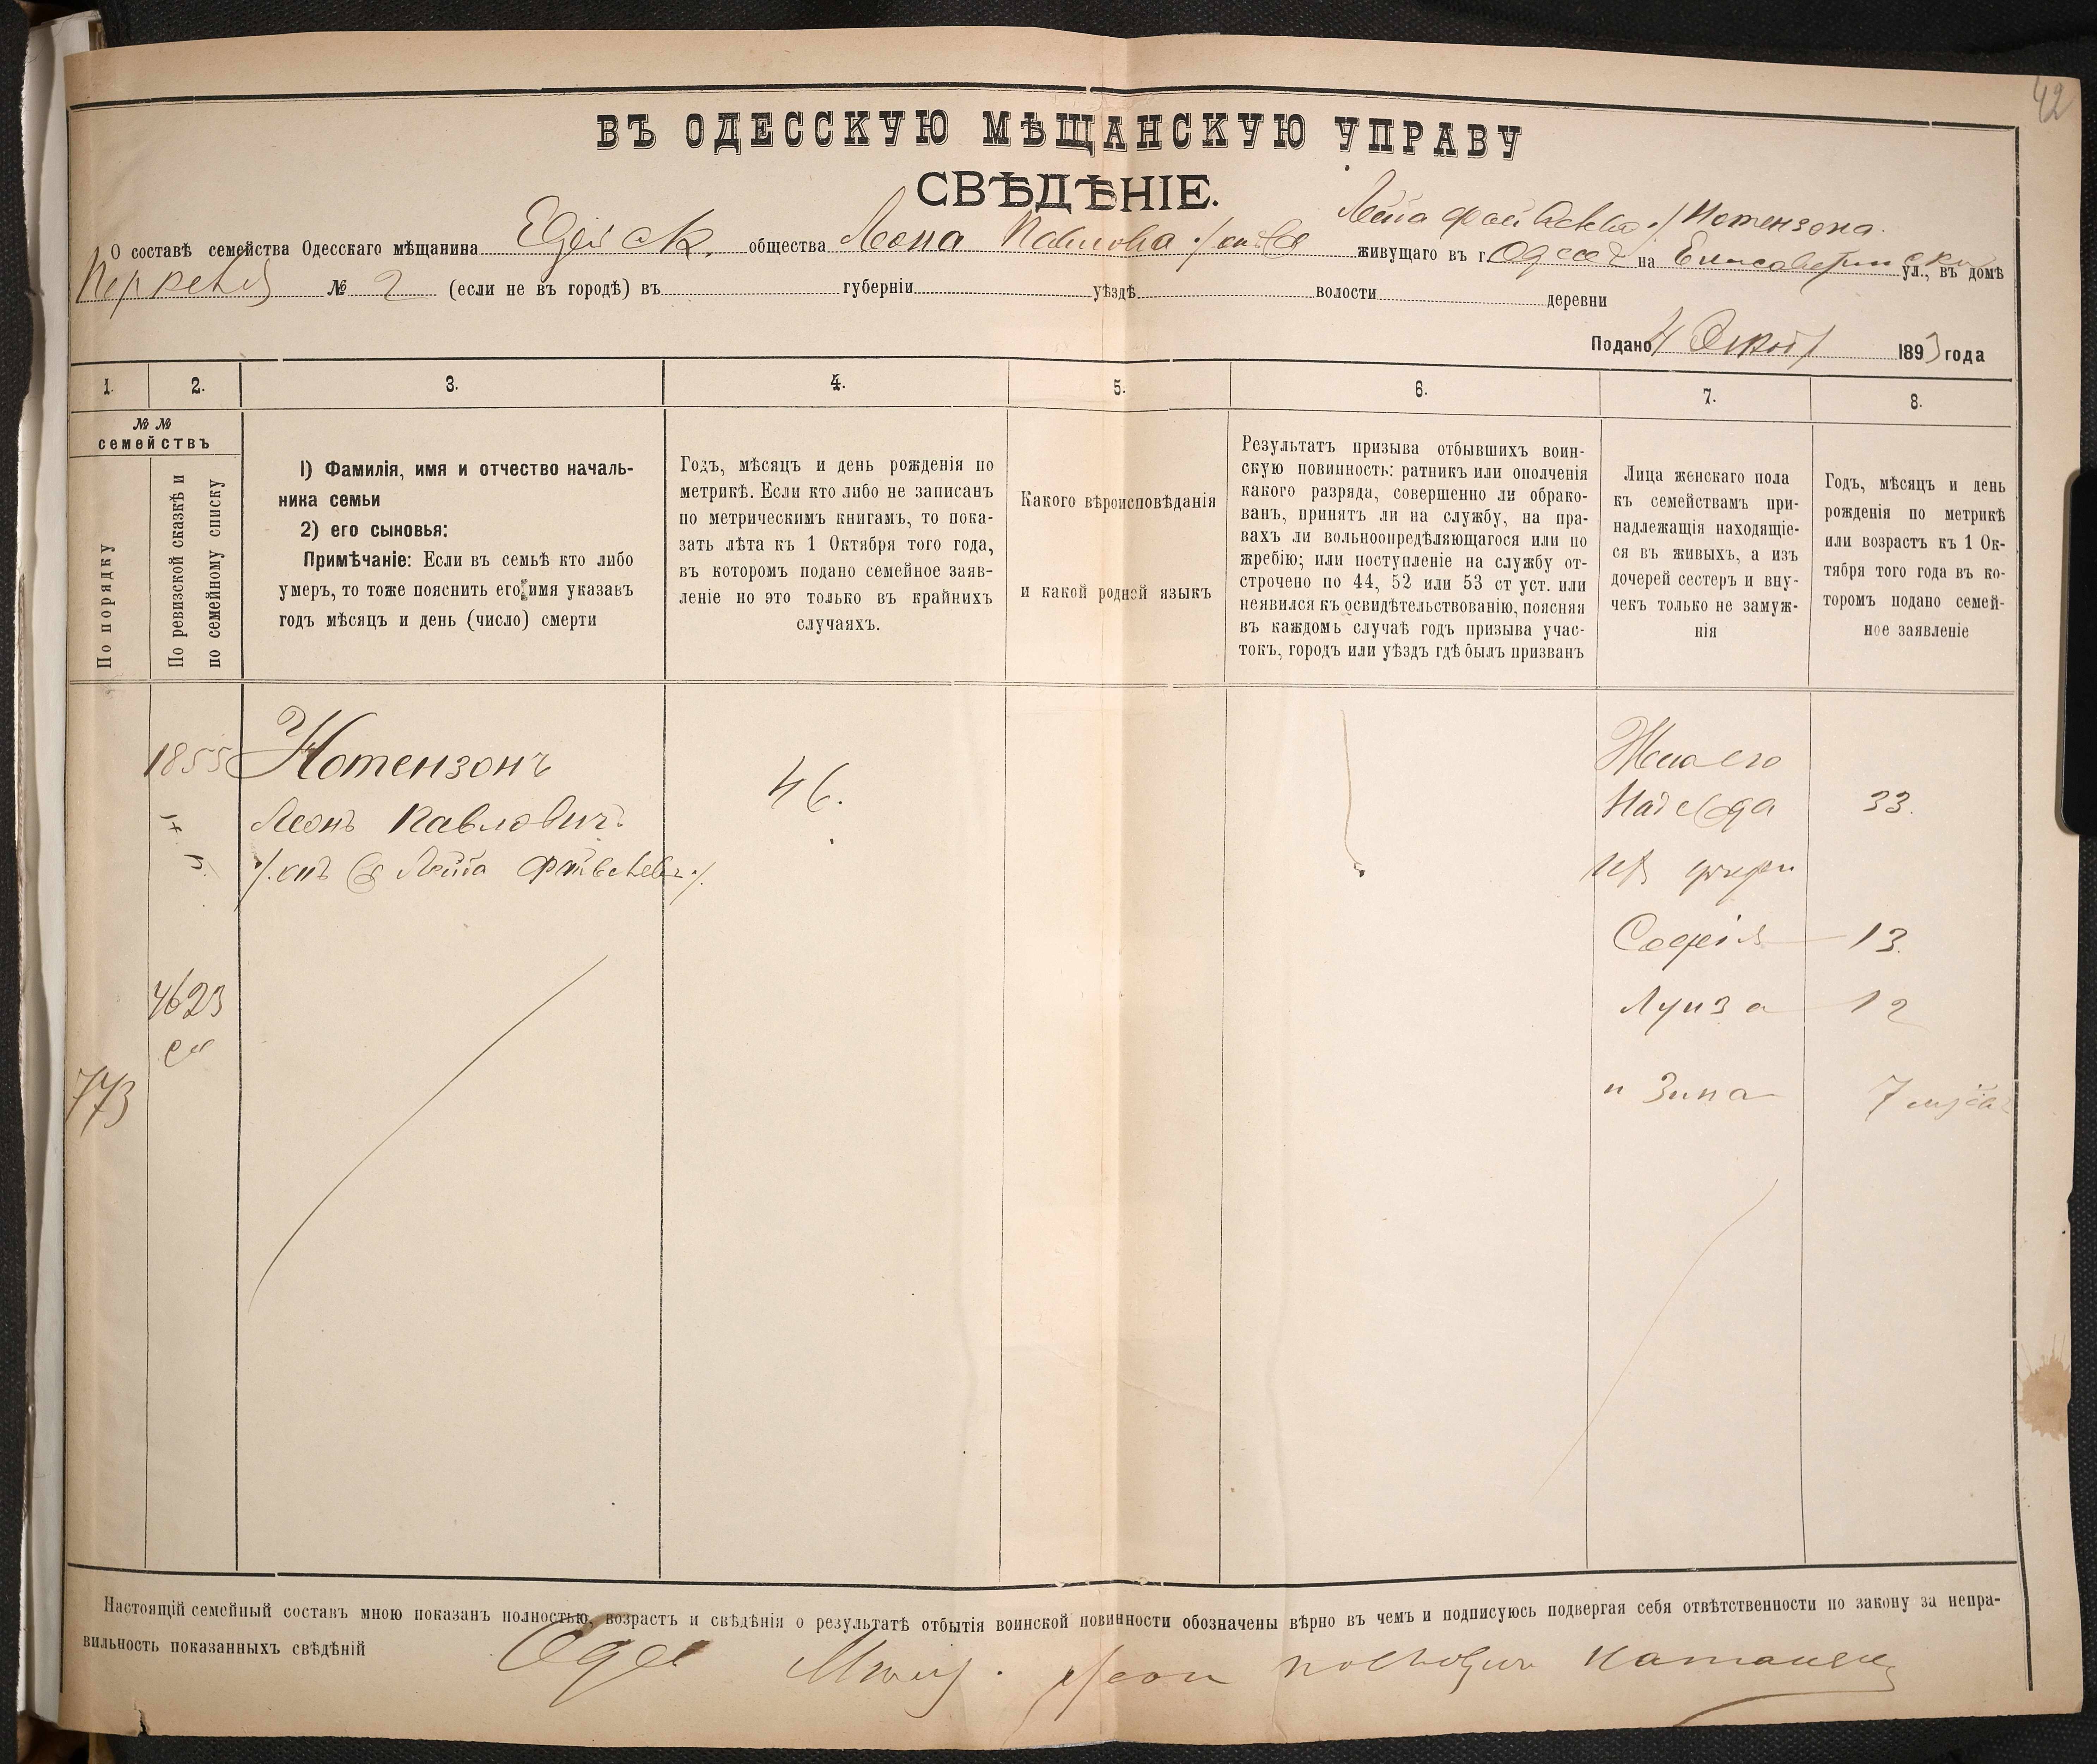 42
ВЪ ОДЕССКУЮ МѢЩАНСКУЮ УПРАВУ
СВѢДѢНІЕ.
О составѣ семейства Одесскаго мѣщанина общества Леона Павлова живущаго въ г. Одессѣ на ул., въ домѣ
№ 2 (если не въ городѣ) въ губерніи уѣздѣ волости деревни
Подано 4 1893 года
1. 2. 3. 4. 5. 6. 7. 8.
№ №
семействъ
По порядку
По ревизской сказкѣ и
по семейному списку
1) Фамилія, имя и отчество началь-
ника семьи
2) его сыновья:
Примѣчаніе: Если въ семьѣ кто либо
умеръ, то тоже пояснить его имя указавъ
годъ мѣсяцъ и день (число) смерти
Годъ, мѣсяцъ и день рожденія по
метрикѣ. Если кто либо не записанъ
по метрическимъ книгамъ, то пока-
зать лѣта къ 1 Октября того года,
въ которомъ подано семейное заяв-
леніе но это только въ крайнихъ
случаяхъ.
Какого вѣроисповѣданія
и какой родной языкъ
Результатъ призыва отбывшихъ воин-
скую повинность: ратникъ или ополченія
какого разряда, совершенно ли обрако-
ванъ, принятъ ли на службу, на пра-
вахъ ли вольноопредѣляющагося или по
жребію; или поступленіе на службу от-
строчено по 44, 52 или 53 ст уст. или
неявился къ освидѣтельствованію, поясняя
въ каждомъ случаѣ годъ призыва учас-
токъ, городъ или уѣздъ гдѣ былъ призванъ
Лица женскаго пола
къ семействамъ при-
надлежащія находящіе-
ся въ живыхъ, а изъ
дочерей сестеръ и вну-
чекъ только не замуж-
нія
Годъ, мѣсяцъ и день
рожденія по метрикѣ
или возрастъ къ 1 Ок-
тября того года въ ко-
торомъ подано семей-
ное заявленіе
1855 Нотензонъ Жена его
Леонъ Павловичъ 46. 33.
Софія 13.
4623 Луиза 12
773 и Зина 7
Настоящій семейный составъ мною показанъ полностью, возрастъ и свѣдѣнія о результатѣ отбытія воинской повинности обозначены вѣрно въ чемъ и подписуюсь подвергая себя отвѣтственности по закону за непра-
вильность показанныхъ свѣдѣній